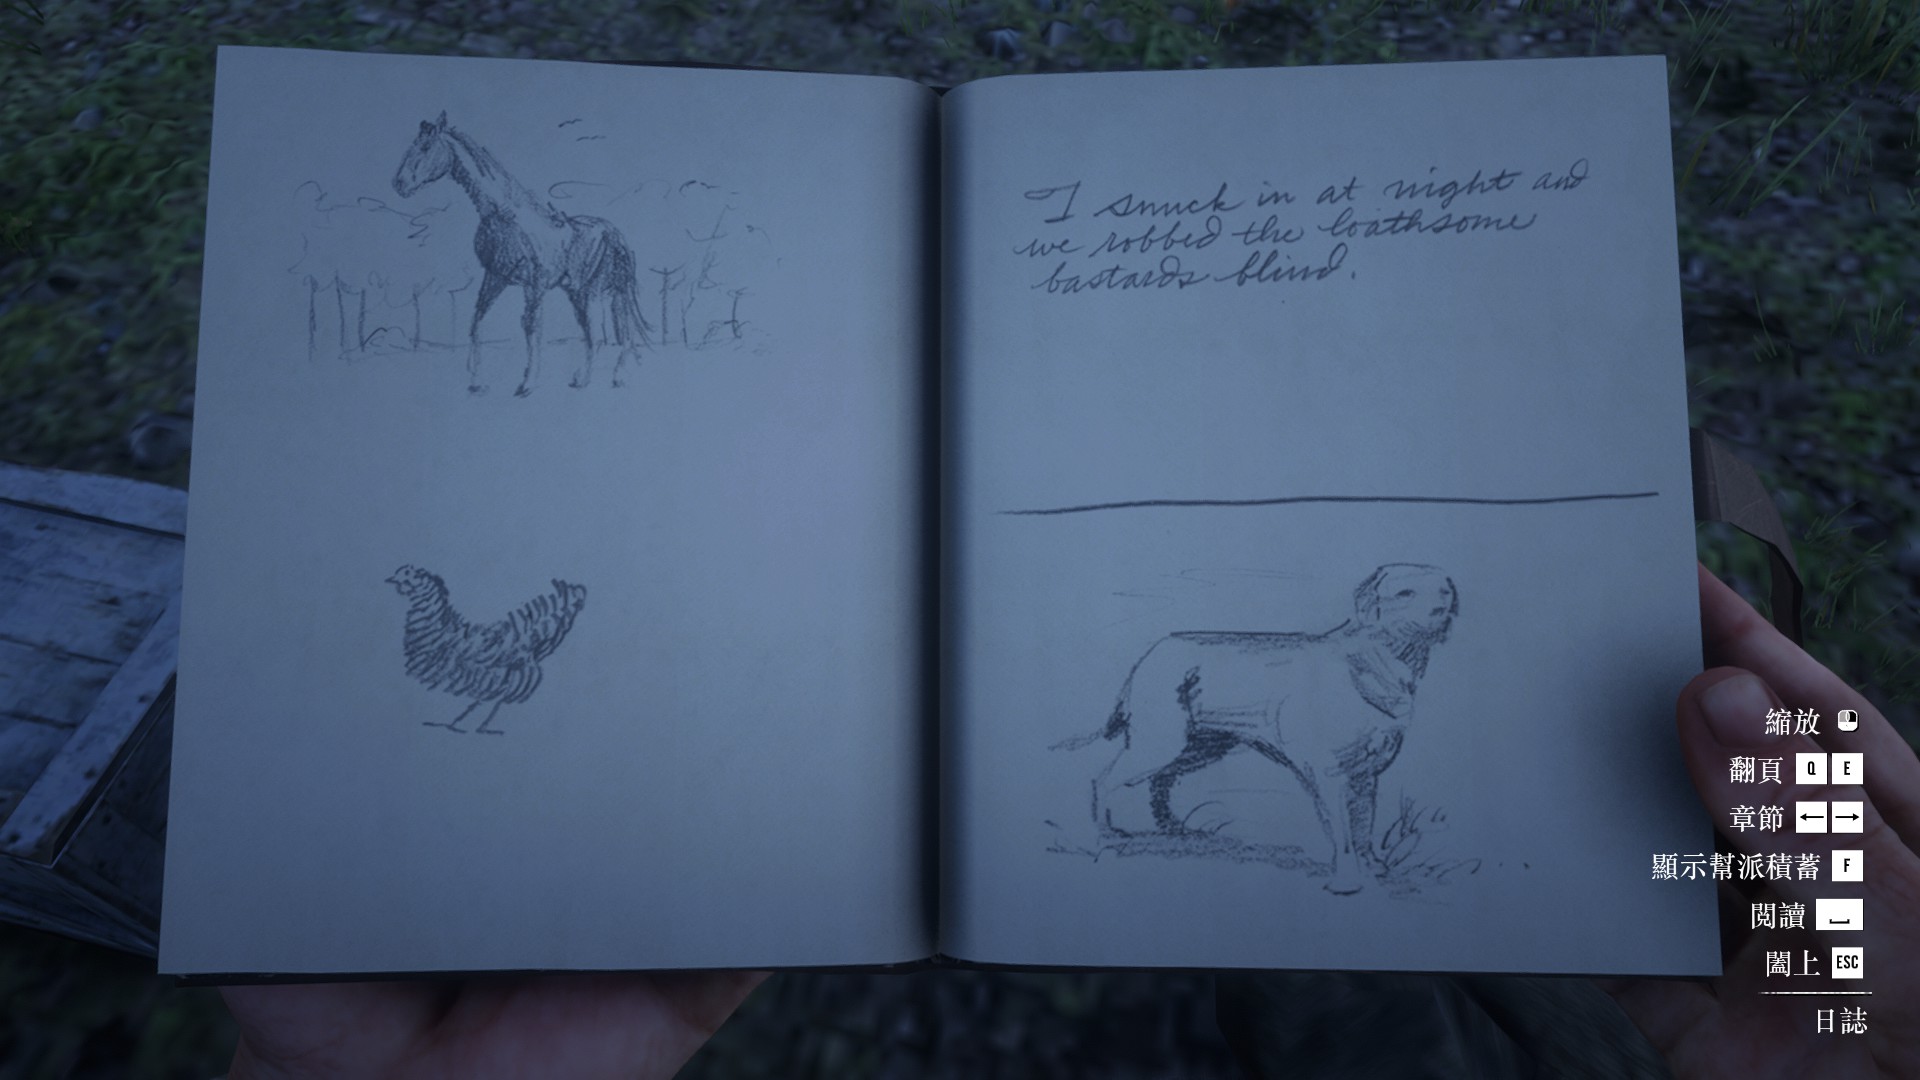 I snuck in at night and
we robbed the loathsome
bastards blind.
縮放
翻頁 Q E
章節 ← →
顯示幫派積蓄 F
閱讀
闔上 ESC
日誌